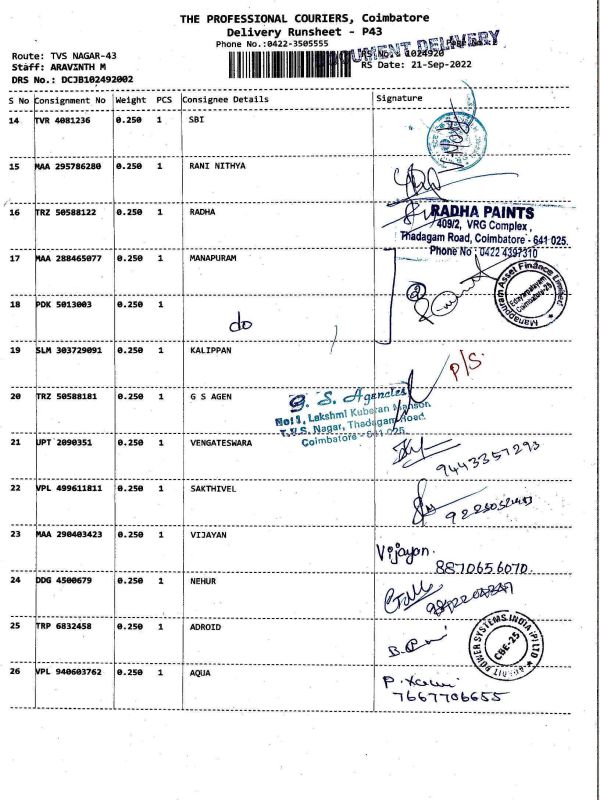 THE PROFESSIONAL COURIERS, Coimbatore
Delivery Runsheet - P43
Phone No.:0422-3505555
DOCUMENT DELIVERY
Route: TVS NAGAR-43
RS No.: 1024920
Staff: ARAVINTH M
RS Date: 21-Sep-2022
DRS No.: DCJB102492002
S No Consignment No Weight PCS Consignee Details Signature
14 TVR 4081236 0.250 1 SBI
15 MAA 295786280 0.250 1 RANI NITHYA
16 TRZ 50588122 0.250 1 RADHA
RADHA PAINTS
409/2, VRG Complex,
Thadagam Road, Coimbatore - 641 025.
Phone No : 0422 4397310
17 MAA 288465077 0.250 1 MANAPURAM
2
Manappuram Asset Finance Limited
Edayarpalayam
Coimbatore-25
18 PDK 5013003 0.250 1
do
19 SLM 303729091 0.250 1 KALIPPAN
P/S.
20 TRZ 50588181 0.250 1 G S AGEN
G. S. Agencies
No: 1, Lakshmi Kuberan Manson
T.V.S. Nagar, Thadagam Road
Coimbatore - 641 025
21 UPT 2090351 0.250 1 VENGATESWARA
9443357293
22 VPL 499611811 0.250 1 SAKTHIVEL
23 MAA 290403423 0.250 1 VIJAYAN
Vijayan.
8870656070.
24 DDG 4500679 0.250 1 NEHUR
25 TRP 6832458 0.250 1 ADROID
POWER SYSTEMS INDIA (P) LTD
CBE-25
26 VPL 940603762 0.250 1 AQUA
7667706655